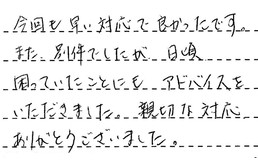 今回も早い対応で良かったです。
また、別件でしたが、日頃
困っていたことにも、アドバイスを
いただきました。親切な対応
ありがとうございました。